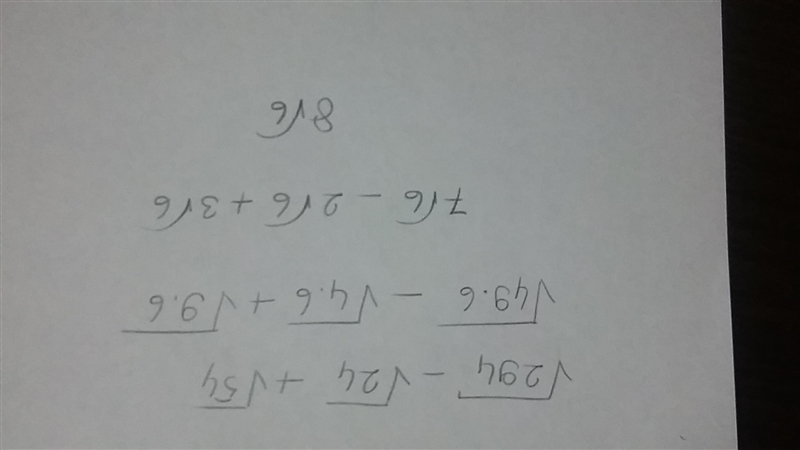 √294 - √24 + √54
√49.6 - √4.6 + √9.6
7√6 - 2√6 + 3√6
8√6